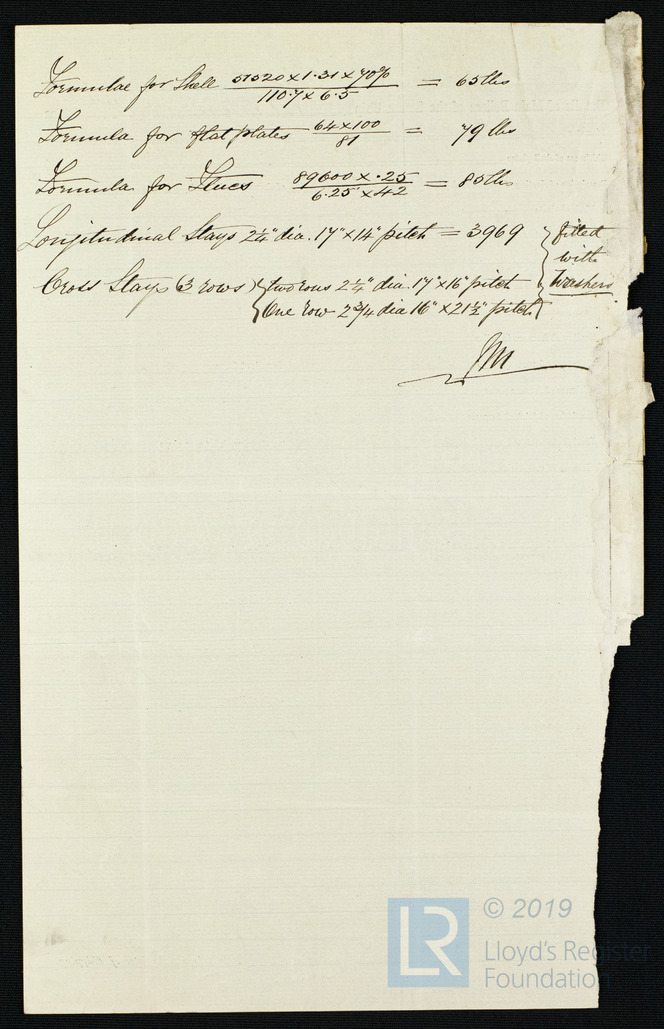 Formulae for Shell 51520 x 1.31 x 70% / 110.7 x 6.5 = 65 lbs
Formula for flat plates 64 x 100 / 81 = 79 lbs
Formula for Flues 89600 x .25 / 6.25 x 42 = 85 lbs
Longitudinal Stays 2¼" dia. 17" x 14" pitch = 3969 } fitted with washers
Cross Stays (3 rows) { two rows 2¼" dia. 17" x 16" pitch
One row 2¾ dia 16" x 21½" pitch }
JM
© 2019
LR
Lloyd's Register
Foundation